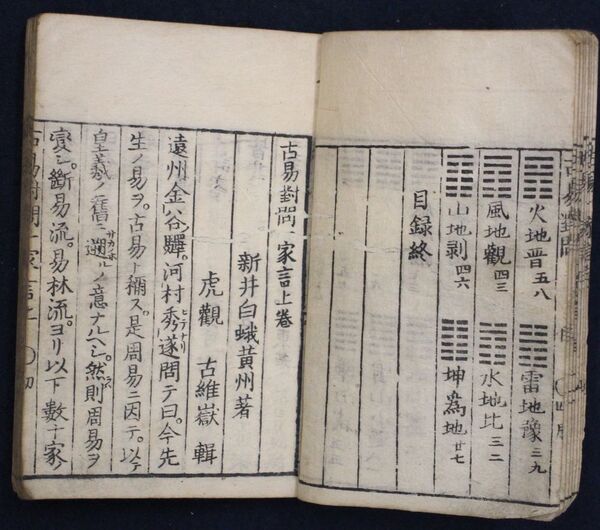 火地晋 五八 雷地豫 三九
風地觀 四三 水地比 三二
山地剥 四六 坤為地 廿七
目録終
古易對問一家言上巻
新井白蛾黄州著
虎觀 古維嶽 輯
遠州金谷驛。河村秀遂問テ曰。今先
生ノ易ヲ。古易ト稱ス。是周易ニ因テ。以テ
皇羲ノ舊ニ遡ルノ意ナルヘシ。然則周易ヲ
変シ。斷易流。易林流。ヨリ以下數十家
古易對問一家言上 〇初